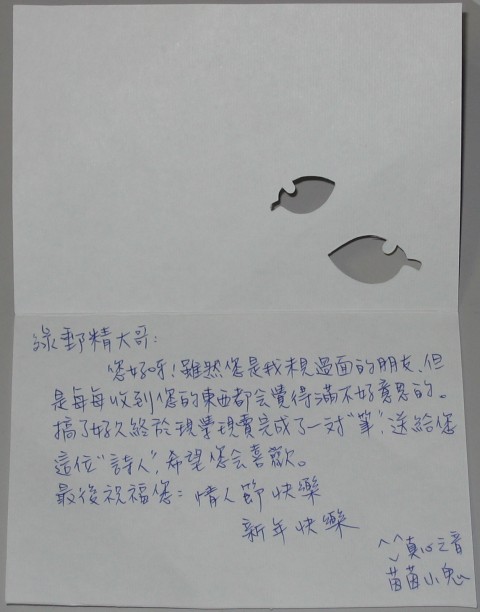 綠野精大哥:
您好呀!雖然您是我未見過面的朋友、但
是每每收到您的東西都会覺得滿不好意思的。
搞了好久終於現學現賣完成了一对“筆”,送給您
這位“詩人”,希望您会喜歡。
最後祝福您:情人節快樂
新年快樂
^^真心之音
苗苗小鬼